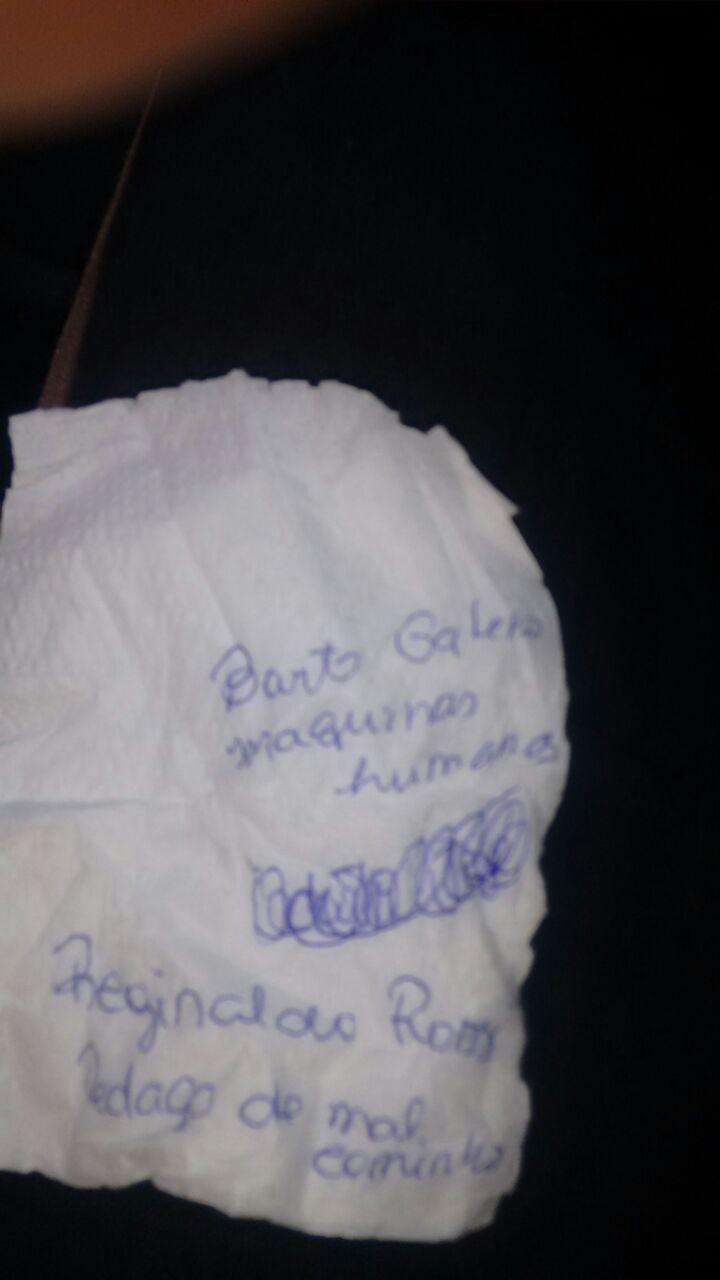 Barto Galeno
maquinas
humanas
Reginaldo Rossy
Pedaço de mal
caminho